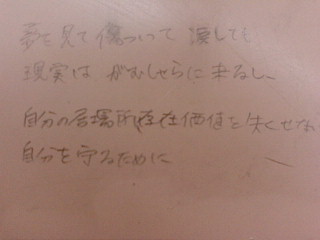 夢を見て傷ついて 涙しても
現実は がむしゃらに来るし、
自分の居場所存在価値を失くせない
自分を守るために